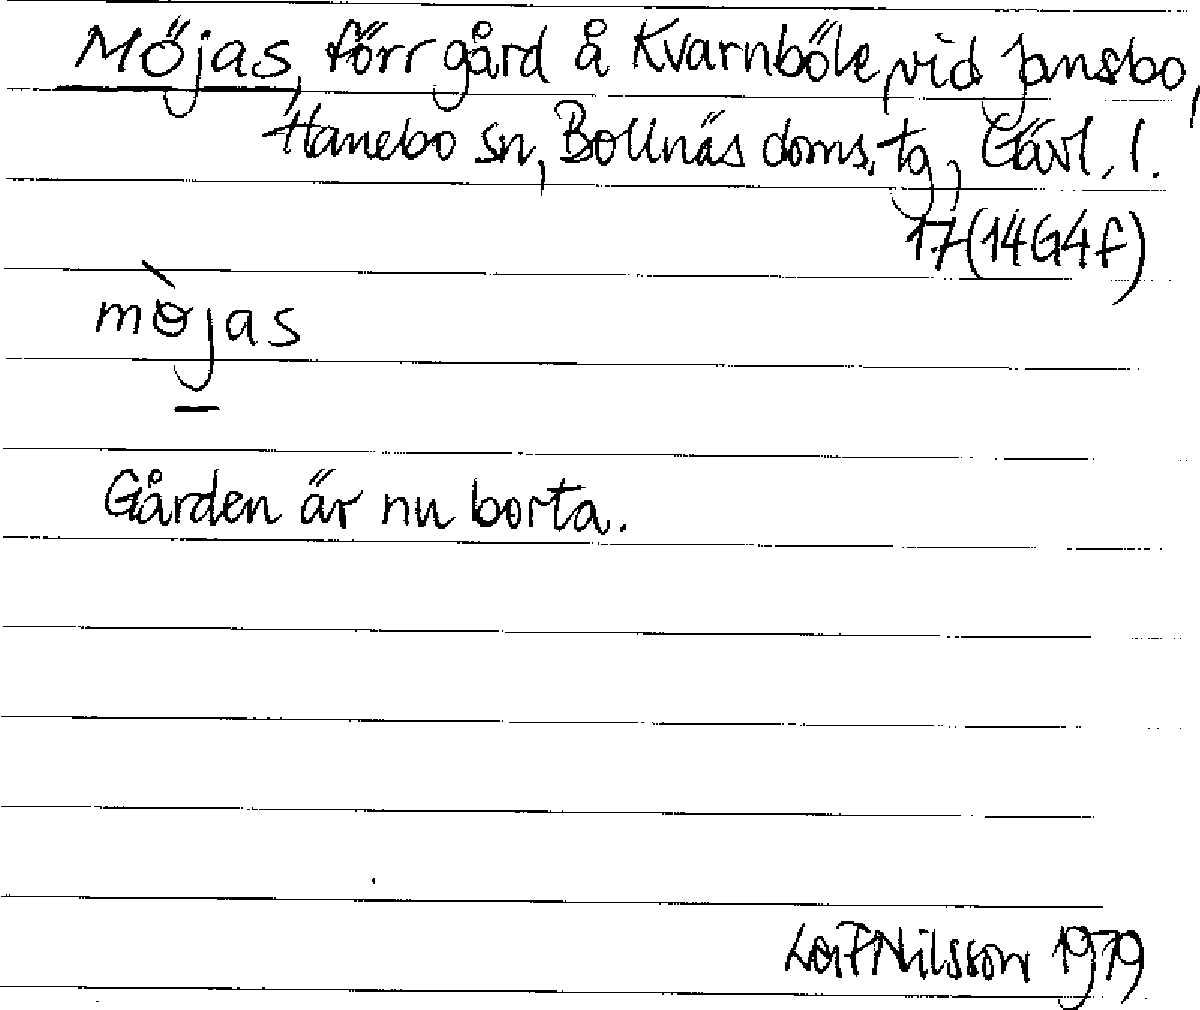 Möjas, förr gård å Kvarnböle, vid Jansbo,
Hanebo sn, Bollnäs doms. tg, Gävl. l.
17 (14G4f)
mɵ̀jas
Gården är nu borta.
Leif Nilsson 1979